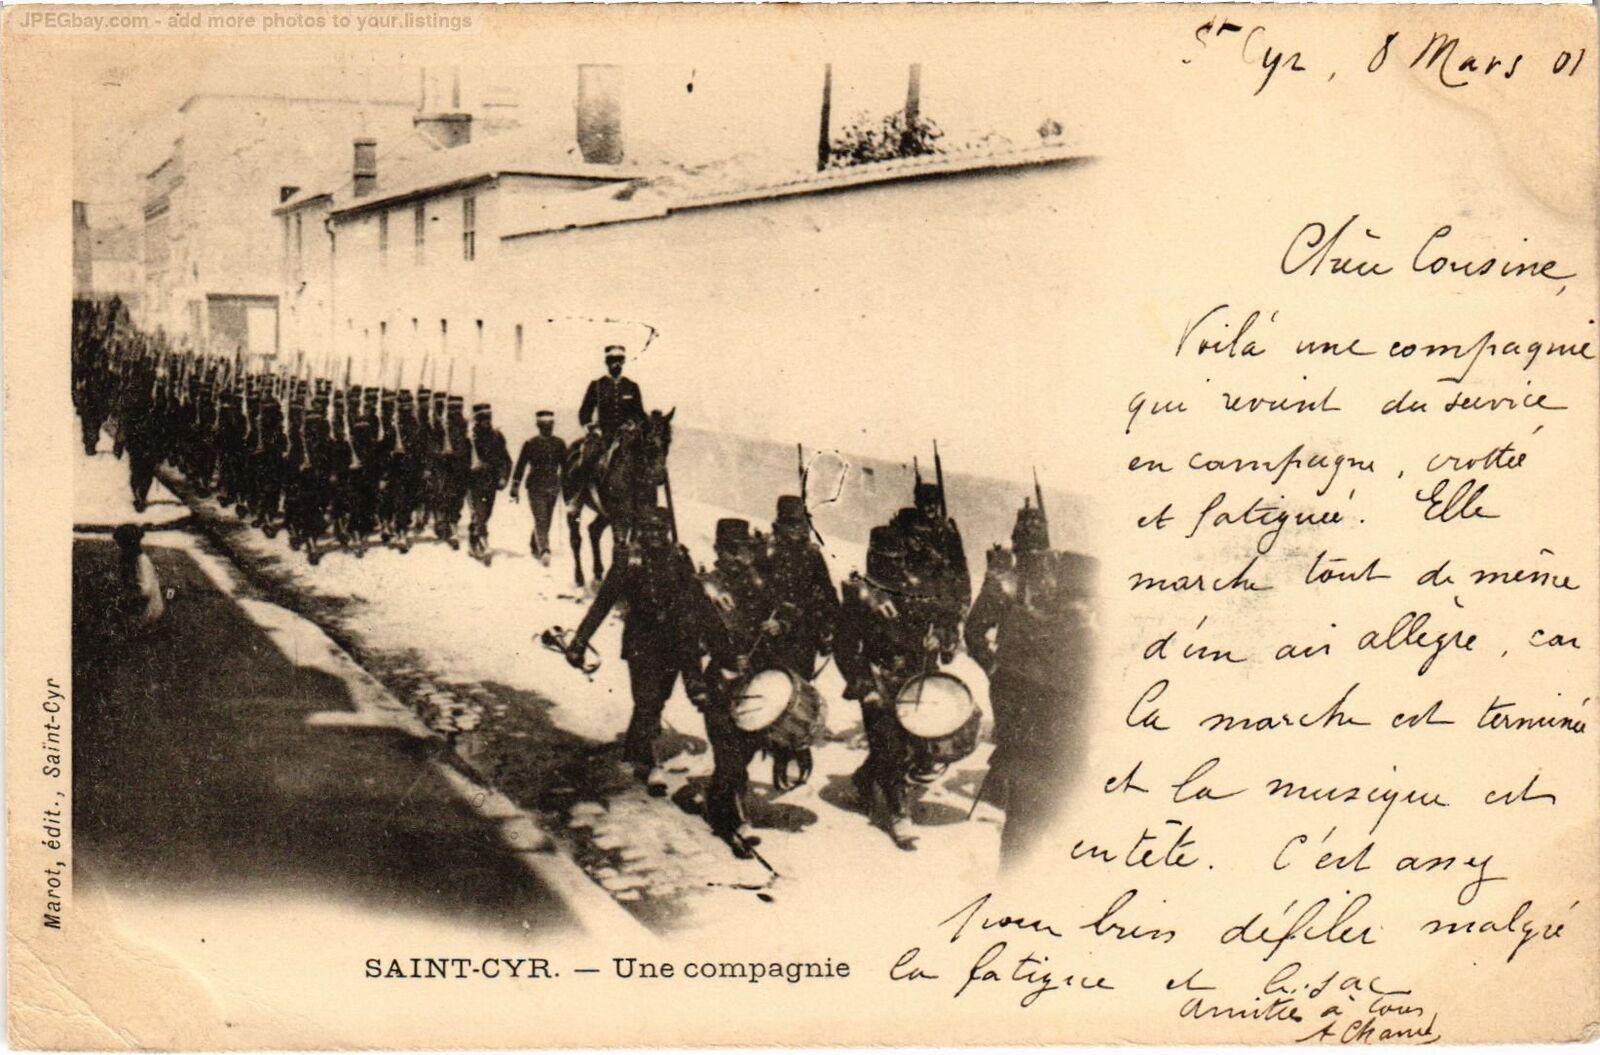 JPEGbay.com - add more photos to your listings
St Cyr, 8 Mars 01
Chère Cousine,
Voilà une compagnie
qui revient du service
en campagne, crottée
et fatiguée. Elle
marche tout de même
d'un air allègre, car
la marche est terminée
et la musique est
en tête. C'est assez
pour bien défiler malgré
la fatigue et le sac
Amitiés à tous
SAINT-CYR. — Une compagnie
Marot, édit., Saint-Cyr